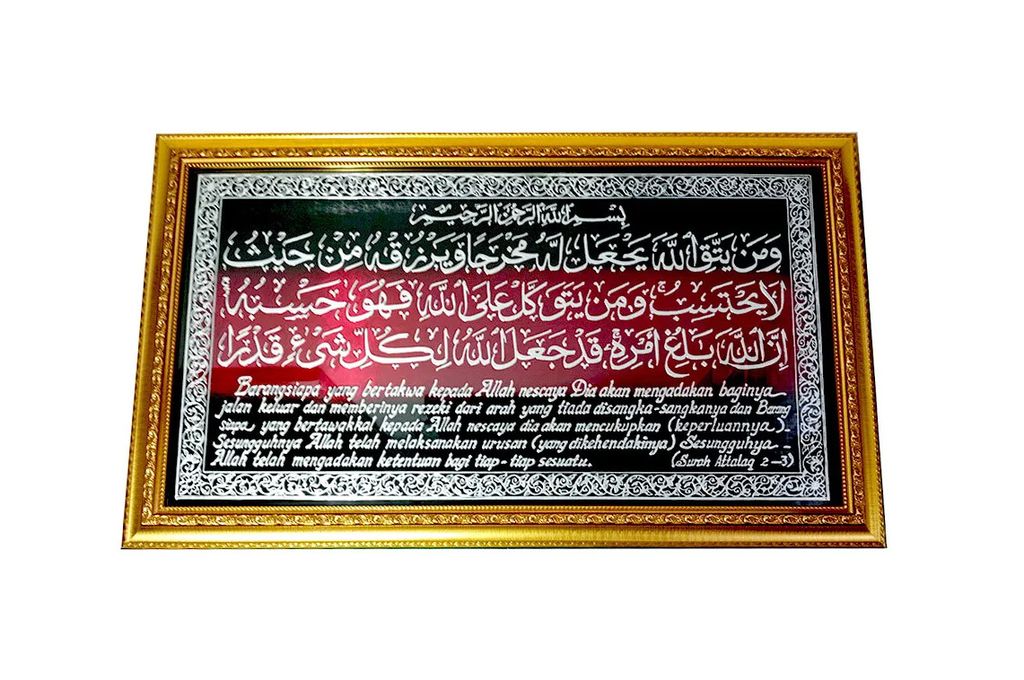 بِسْمِ اللَّهِ الرَّحْمَنِ الرَّحِيمِ
وَمَن يَتَّقِ اللَّهَ يَجْعَل لَّهُ مَخْرَجًا وَيَرْزُقْهُ مِنْ حَيْثُ
لَا يَحْتَسِبُ وَمَن يَتَوَكَّلْ عَلَى اللَّهِ فَهُوَ حَسْبُهُ
إِنَّ اللَّهَ بَلِغُ أَمْرِهِ قَدْ جَعَلَ اللَّهُ لِكُلِّ شَيْءٍ قَدْرًا
Barangsiapa yang bertakwa kepada Allah nescaya Dia akan mengadakan baginya
jalan keluar dan memberinya rezeki dari arah yang tiada disangka-sangkanya dan Barang
siapa yang bertawakkal kepada Allah nescaya dia akan mencukupkan (keperluannya)-
Sesungguhnya Allah telah melaksanakan urusan (yang dikehendakinya) Sesungguhya -
Allah telah mengadakan ketentuan bagi tiap-tiap sesuatu. (Surah Attalaq 2-3)